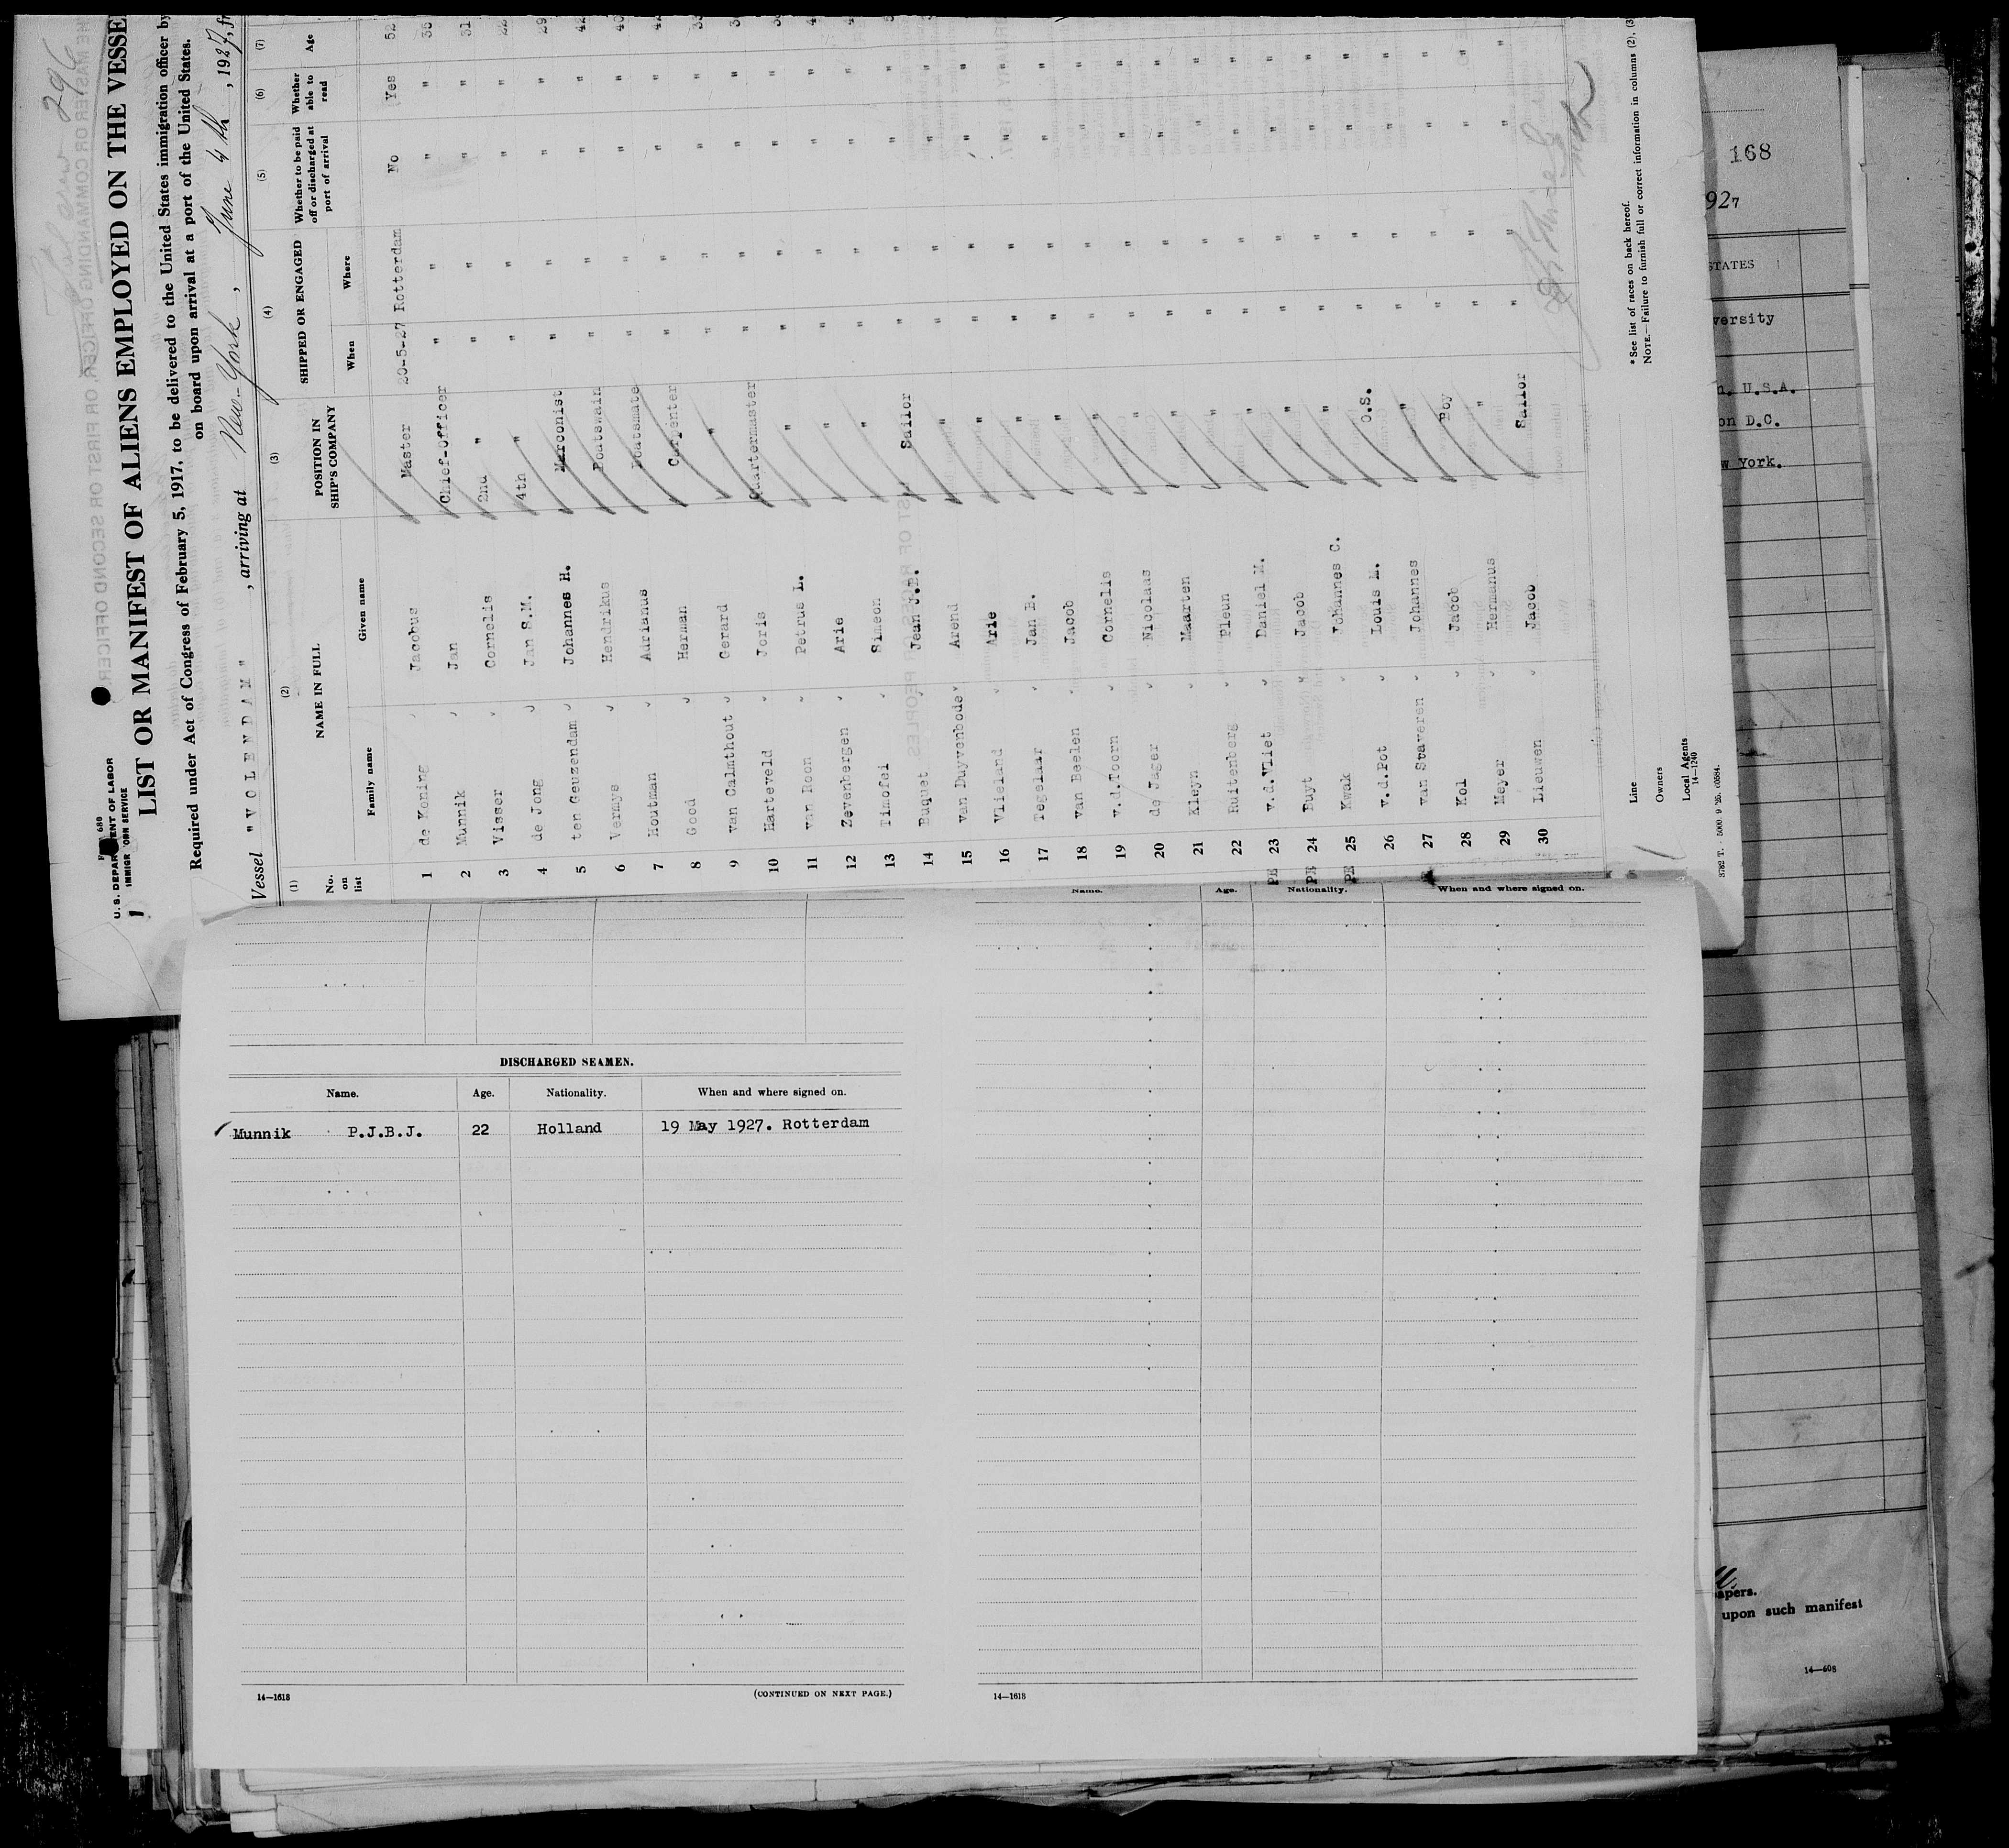 U. S. DEPARTMENT OF LABOR
IMMIGRATION SERVICE
296
LIST OR MANIFEST OF ALIENS EMPLOYED ON THE VESSE
Required under Act of Congress of February 5, 1917, to be delivered to the United States immigration officer by
on board upon arrival at a port of the United States.
Vessel "VOLENDAM", arriving at New-York, June 4th, 1927, fr
(1) (2) (3) (4) (5) (6) (7)
No. on list NAME IN FULL POSITION IN SHIP'S COMPANY SHIPPED OR ENGAGED Whether to be paid off or discharged at port of arrival Whether able to read Age
Family name Given name When Where
1 de Koning Jacobus Master 20-5-27 Rotterdam No Yes 52
2 Munnik Jan Chief-Officer " " " " 35
3 Visser Cornelis 2nd " " " " " 31
4 de Jong Jan S.M. 4th " " " " "
5 ten Geuzendam Johannes H. Marconist " " " " 29
6 Vermys Hendrikus Boatswain " " " " 42
7 Houtman Adrianus Boatsmate " " " "
8 Good Herman Carpenter " " " "
9 van Calmthout Gerard " " " " "
10 Harteveld Joris Quartermaster " " " "
11 van Roon Petrus L. " " " " "
12 Zevenbergen Arie " " " " "
13 Timofei Simeon " " " " "
14 Buquet Jean J.B. Sailor " " " "
15 van Duyvenbode Arend " " " " "
16 Vlieland Arie " " " " "
17 Tegelaar Jan B. " " " " "
18 van Beelen Jacob " " " " "
19 v.d.Toorn Cornelis " " " " "
20 de Jager Nicolaas " " " " "
21 Kleyn Maarten " " " " "
22 Ruitenberg Pleun " " " " "
23 v.d.Vliet Daniel M. " " " " "
24 Buyt Jacob " " " " "
25 Kwak Johannes C. " " " " "
26 v.d.Pot Louis M. O.S. " " " "
27 van Staveren Johannes " " " " "
28 Kol Jacob Boy " " " "
29 Meyer Hermanus " " " " "
30 Lieuwen Jacob Sailor " "
Line
Owners
Local Agents
14—1240
* See list of races on back hereof.
NOTE.—Failure to furnish full or correct information in columns (2), (3
Name. Age. Nationality. When and where signed on.
DISCHARGED SEAMEN.
Name. Age. Nationality. When and where signed on.
Munnik P.J.B.J. 22 Holland 19 May 1927. Rotterdam
14—1618
(CONTINUED ON NEXT PAGE.)
14—1618
168
927
STATES
versity
U.S.A.
on D.C.
w York.
apers.
upon such manifest
14—608